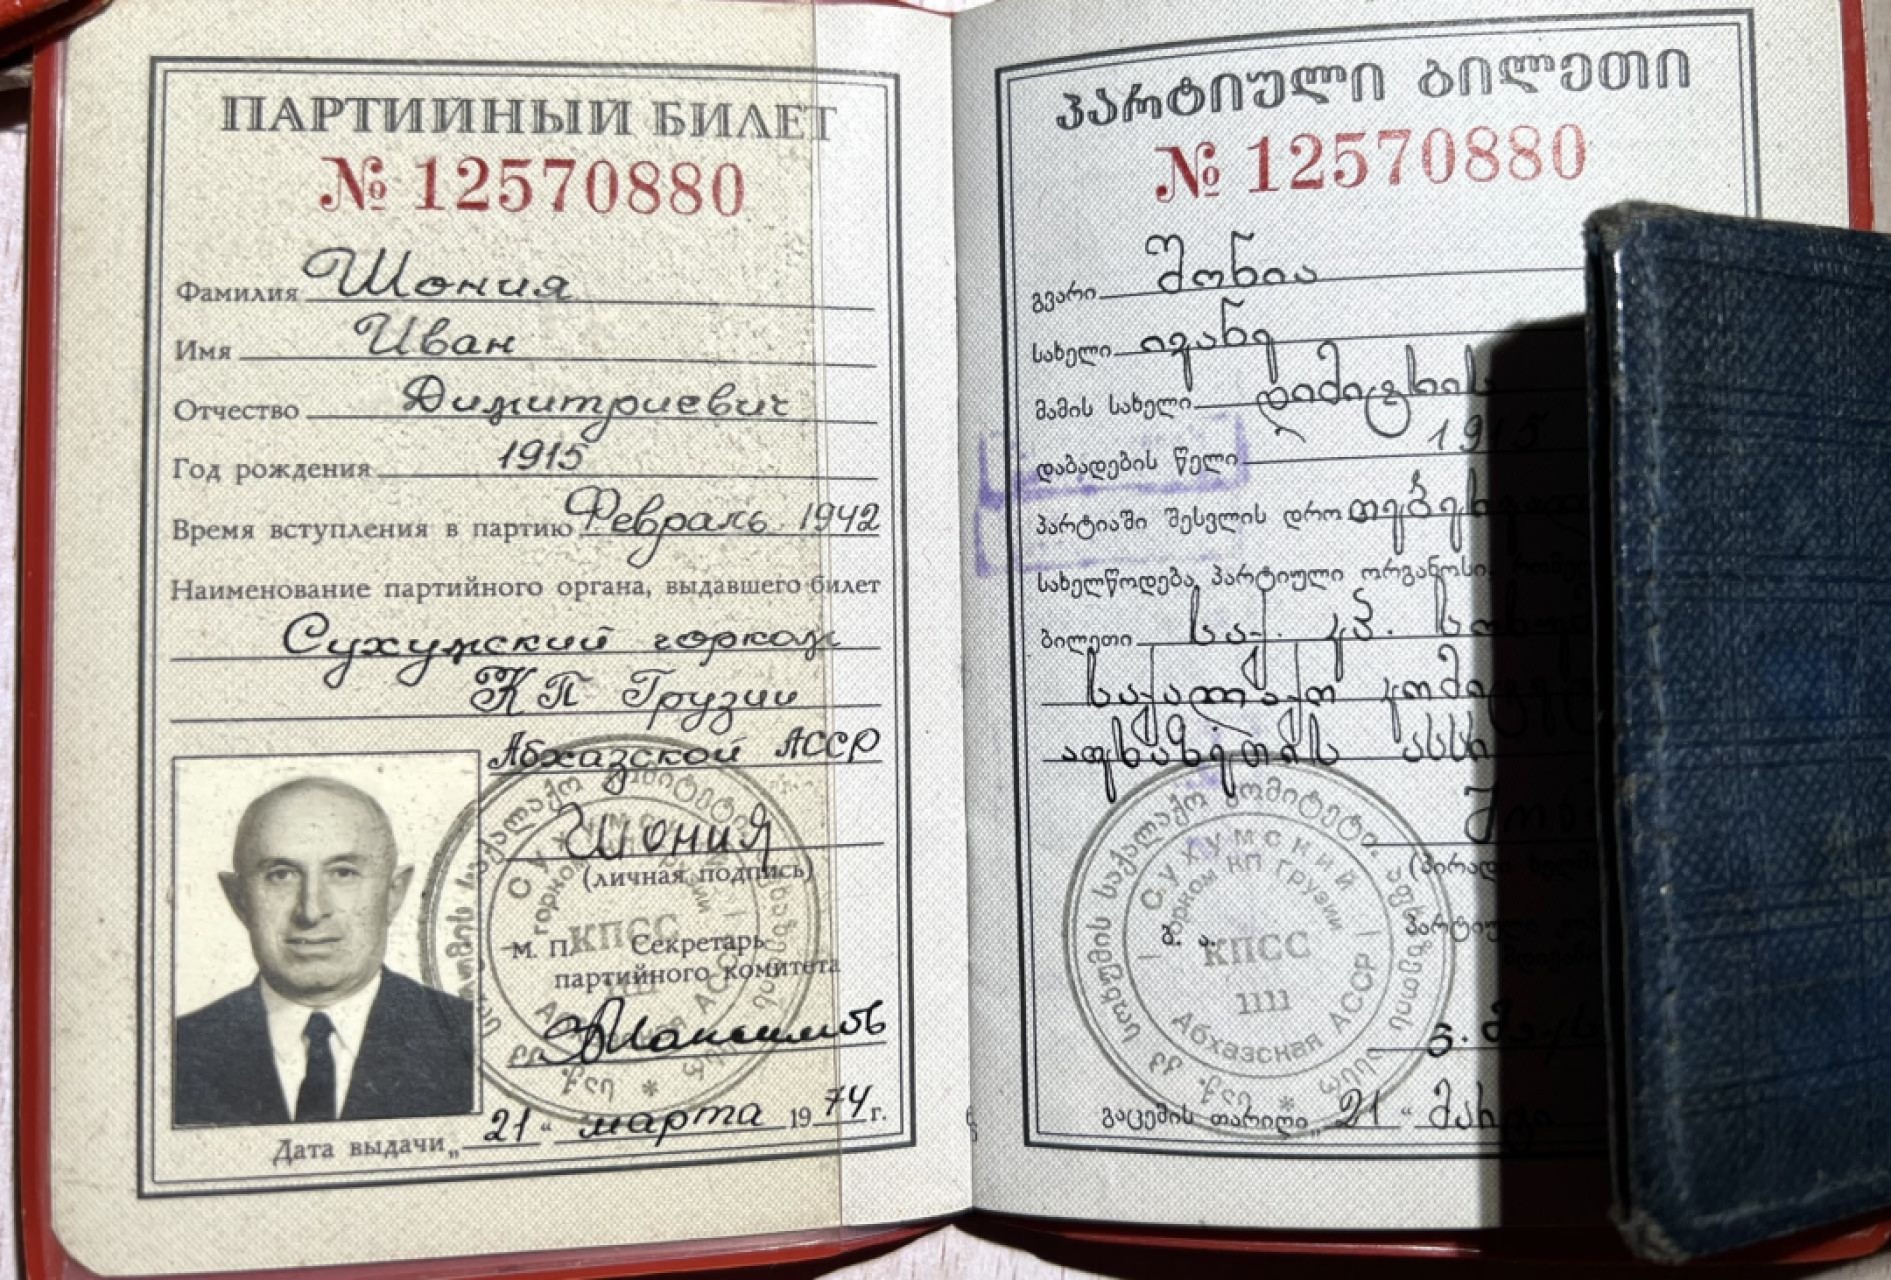 ПАРТИЙНЫЙ БИЛЕТ
№ 12570880
Фамилия Шония
Имя Иван
Отчество Димитриевич
Год рождения 1915
Время вступления в партию Февраль 1942
Наименование партийного органа, выдавшего билет
Сухумский горком
КП Грузии
Абхазской АССР
Шония
(личная подпись)
М. П. Секретарь
партийного комитета
Дата выдачи „21“ марта 1974 г.
პარტიული ბილეთი
№ 12570880
გვარი შონია
სახელი ივანე
მამის სახელი დიმიტრის
დაბადების წელი 1915
პარტიაში შესვლის დრო
სახელწოდება პარტიული ორგანოსი,
ბილეთი საქ. კპ.
საქალაქო
აფხაზეთის ასსრ
(პირადი
ბ. ა. პარტიული
გაცემის თარიღი „21“ მარტი
სოხუმის საქალაქო კომიტეტი. აფხაზეთის
Сухумский
горком КП Грузии
КПСС
1111
Абхазская АССР